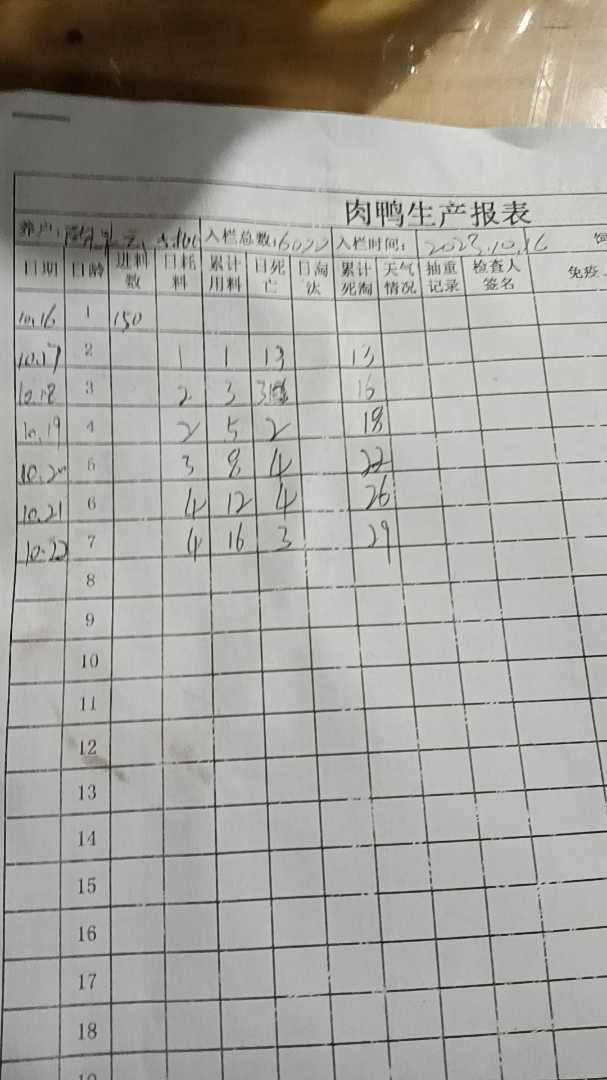 肉鸭生产报表
养户: 入栏总数:6000 入栏时间: 2023.10.16 饲
日期 日龄 进料数 日耗料 累计用料 日死亡 日淘汰 累计死淘 天气情况 抽重记录 检查人签名 免疫
10.16 1 150
10.17 2 1 1 13 13
10.18 3 2 3 3 16
10.19 4 2 5 2 18
10.20 5 3 8 4 22
10.21 6 4 12 4 26
10.22 7 4 16 3 29
8
9
10
11
12
13
14
15
16
17
18
19